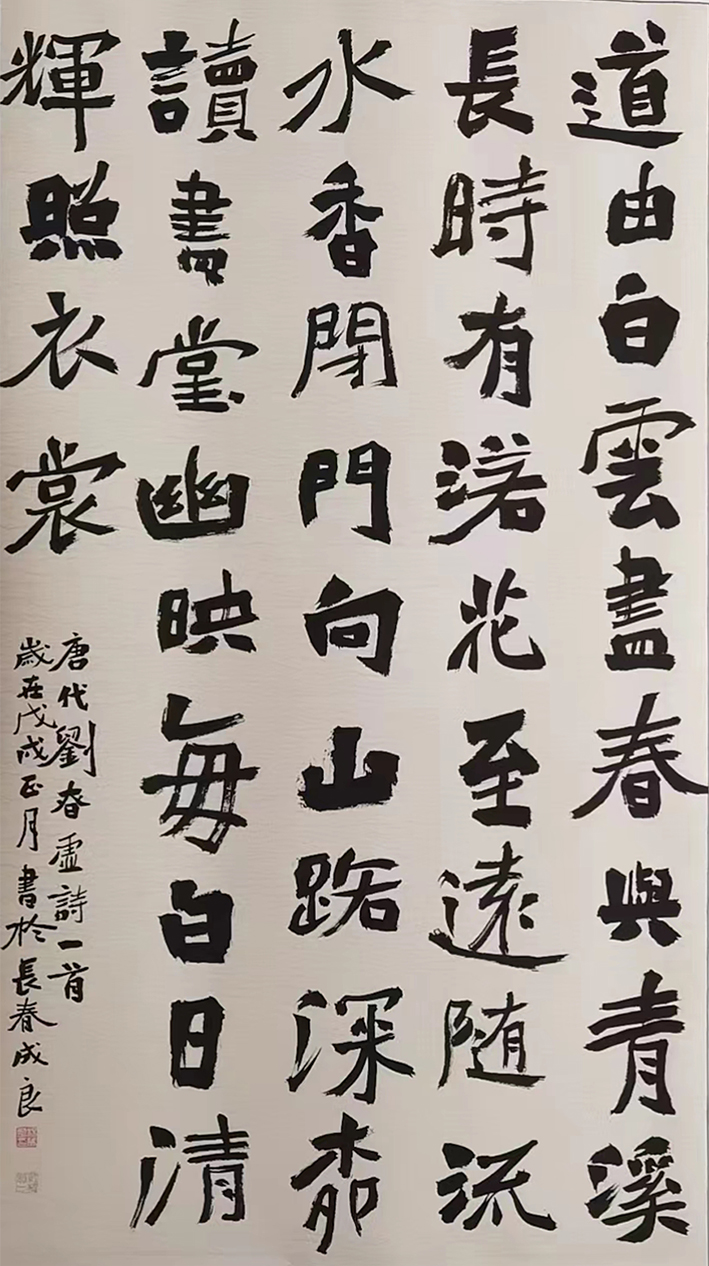 道由白雲盡春與青溪
長時有落花至遠随流
水香閉門向山路深柳
讀書堂幽映每白日清
輝照衣裳
唐代劉昚虚詩一首
歲在戊戌正月書於長春成良